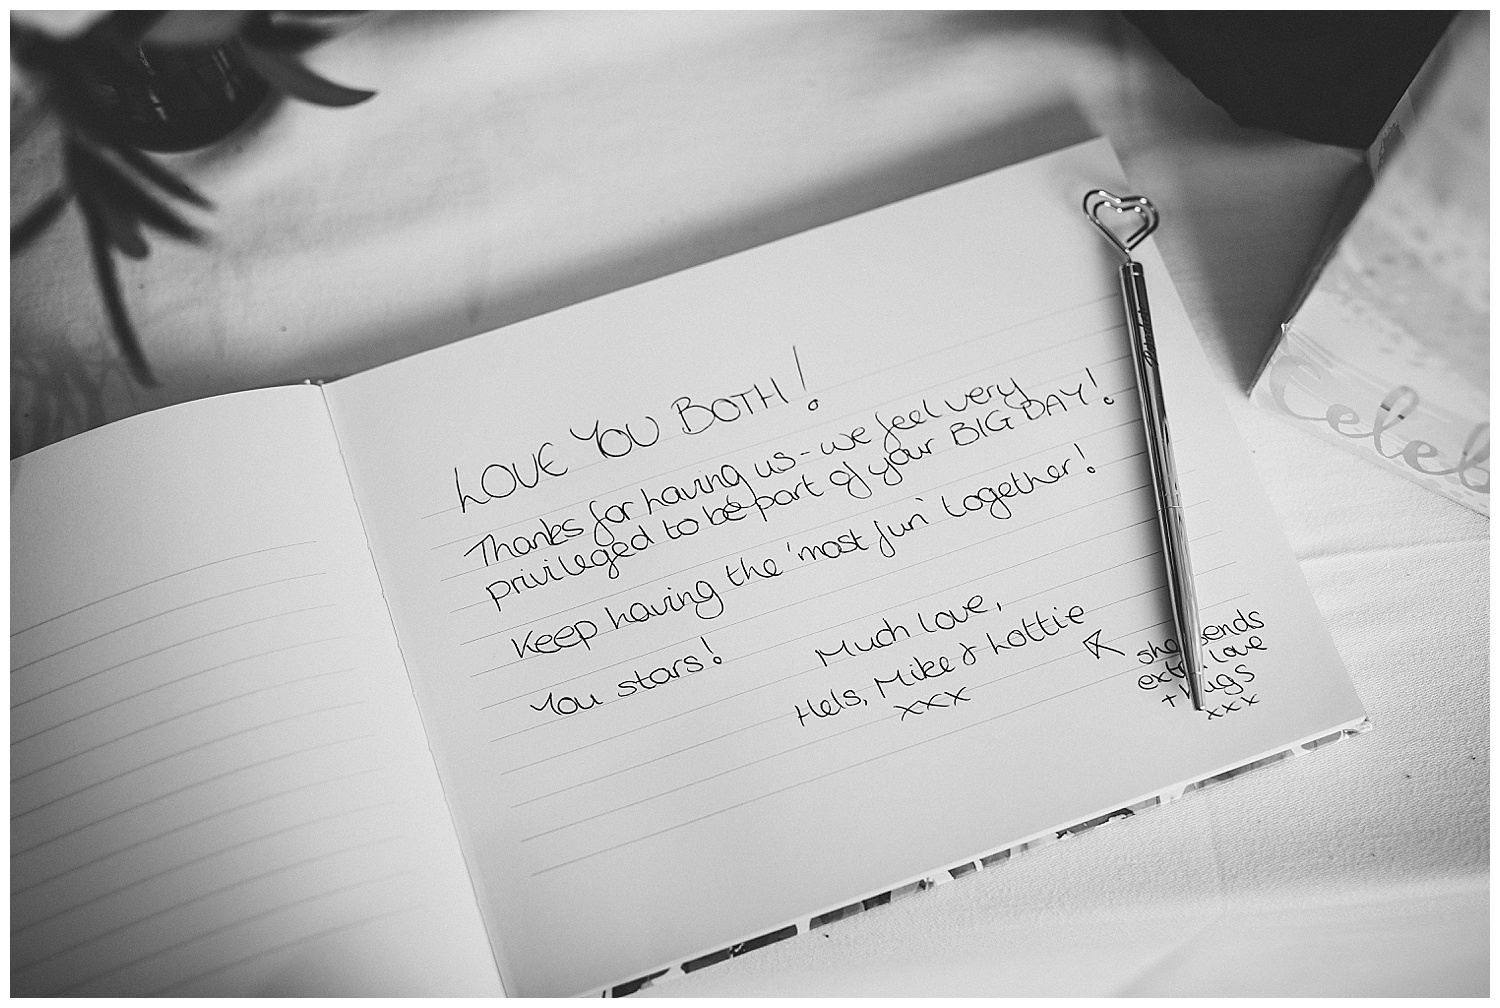 LOVE YOU BOTH!
Thanks for having us - we feel very
privileged to be part of your BIG DAY!
Keep having the 'most fun' together!
You stars!
Much love,
Hels, Mike & Lottie
xxx
she sends
extra love
+ hugs
xxx
Celeb